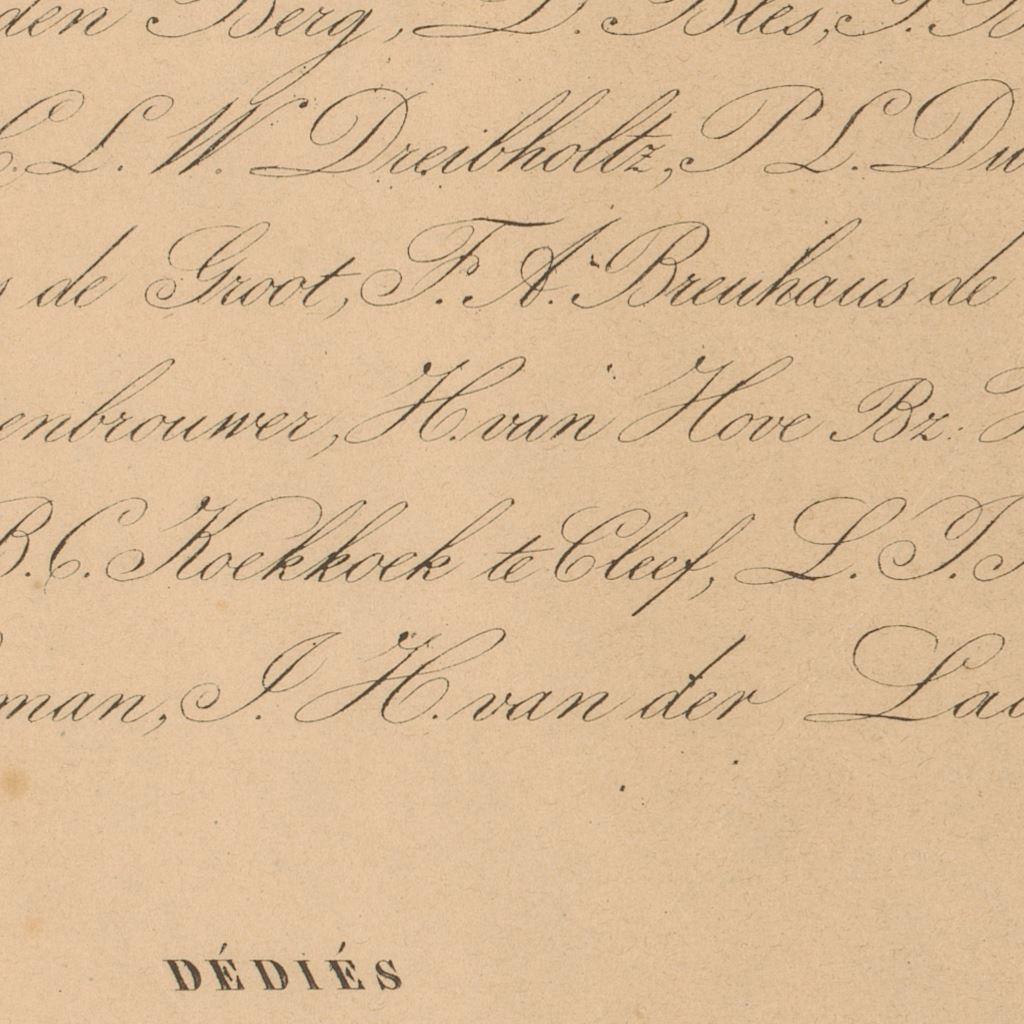 den Berg, D. Bles, J. B
C. L. W. Dreibholtz, P. L. Du
s de Groot, F. A. Breuhaus de
enbrouwer, H. van Hove Bz. H
B. C. Koekkoek te Cleef, L. J.
man, J. H. van der Laa
DÉDIÉS